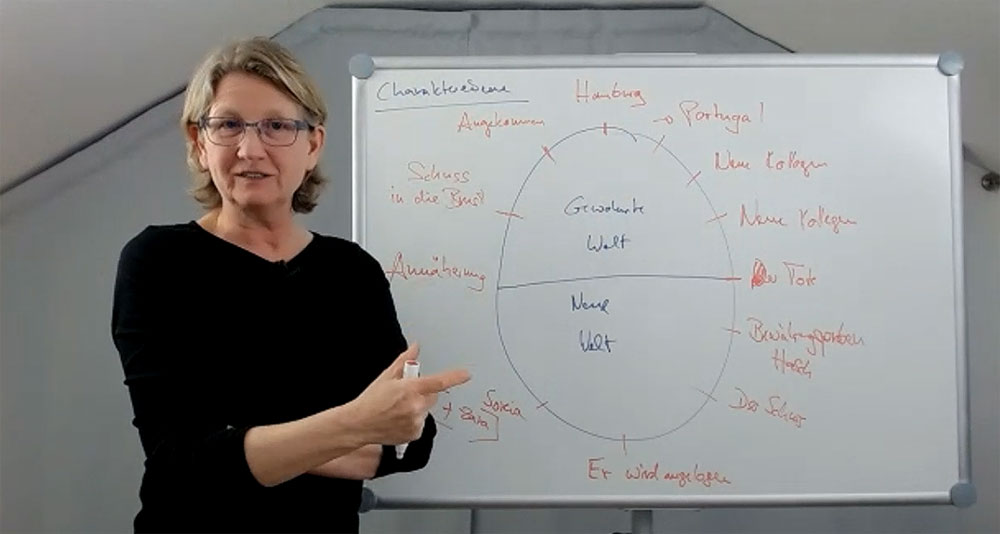 Charakterebene
Hamburg
→ Portugal
Neue Kollegen
Neue Kollegen
Der Tote
Bewährungsproben
Hasch
Der Schuss
Er wird angelogen
Soraia
+ Zara]
Annäherung
Schuss
in die Brust
Angekommen
Gewohnte
Welt
Neue
Welt